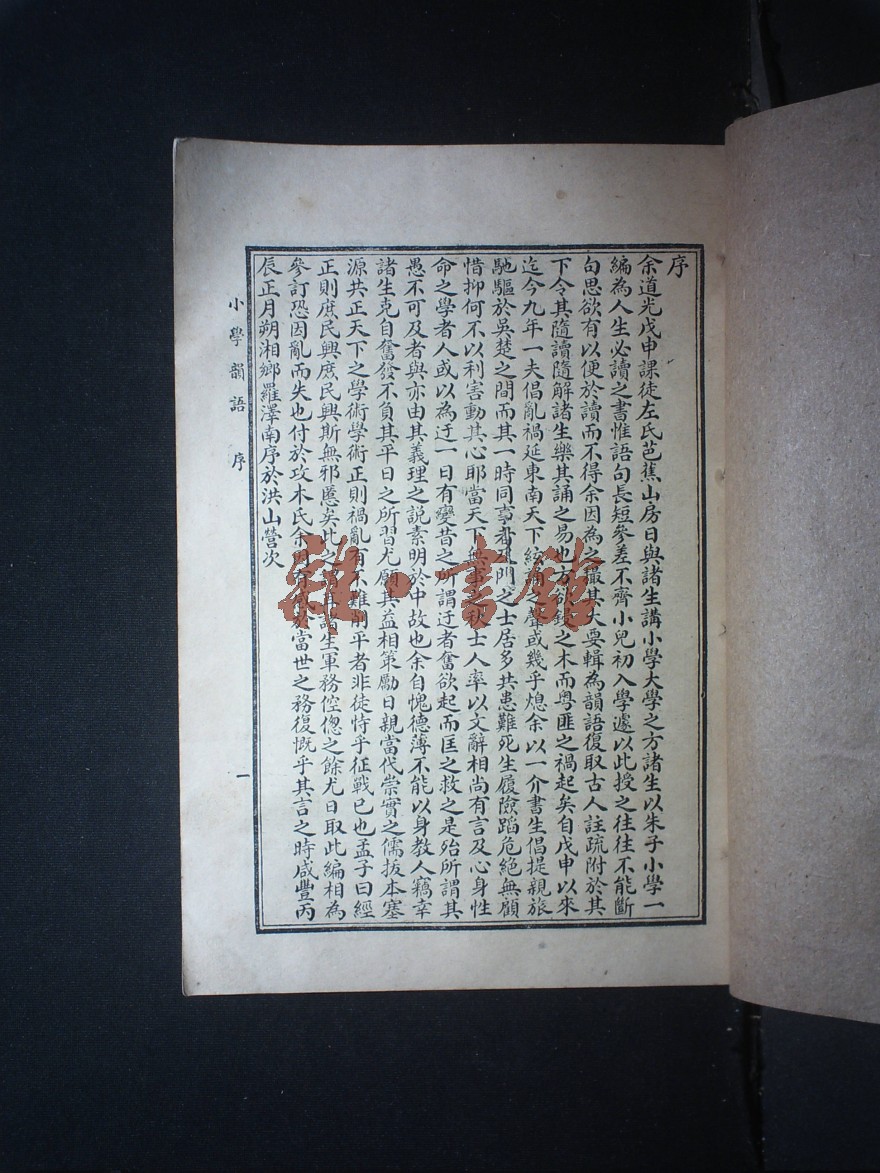 序
余道光戊申課徒左氏芭蕉山房日與諸生講小學大學之方諸生以朱子小學一
編為人生必讀之書惟語句長短參差不齊小兒初入學遽以此授之往往不能斷
句思欲有以便於讀而不得余因為之撮其大要輯為韻語復取古人註疏附於其
下令其隨讀隨解諸生樂其誦之易也方欲鋟之木而粵匪之禍起矣自戊申以來
迄今九年一夫倡亂禍延東南天下絃誦之聲或幾乎熄余以一介書生倡提親旅
馳驅於吳楚之間而其一時同事者及門之士居多共患難死生履險蹈危絕無顧
惜抑何不以利害動其心耶當天下無事之秋士人率以文辭相尚有言及心身性
命之學者人或以為迂一日有變昔之所謂迂者奮欲起而匡之救之是殆所謂其
愚不可及者與亦由其義理之說素明於中故也余自愧德薄不能以身教人竊幸
諸生克自奮發不負其平日之所習尤願其益相策勵日親當代崇實之儒拔本塞
源共正天下之學術學術正則禍亂有不難削平者非徒恃乎征戰已也孟子曰經
正則庶民興庶民興斯無邪慝矣此之謂耳諸生軍務倥傯之餘尤日取此編相為
參訂恐因亂而失也付於攻木氏余因有感於當世之務復慨乎其言之時咸豐丙
辰正月朔湘鄉羅澤南序於洪山營次
小學韻語 序
一
雜·書館